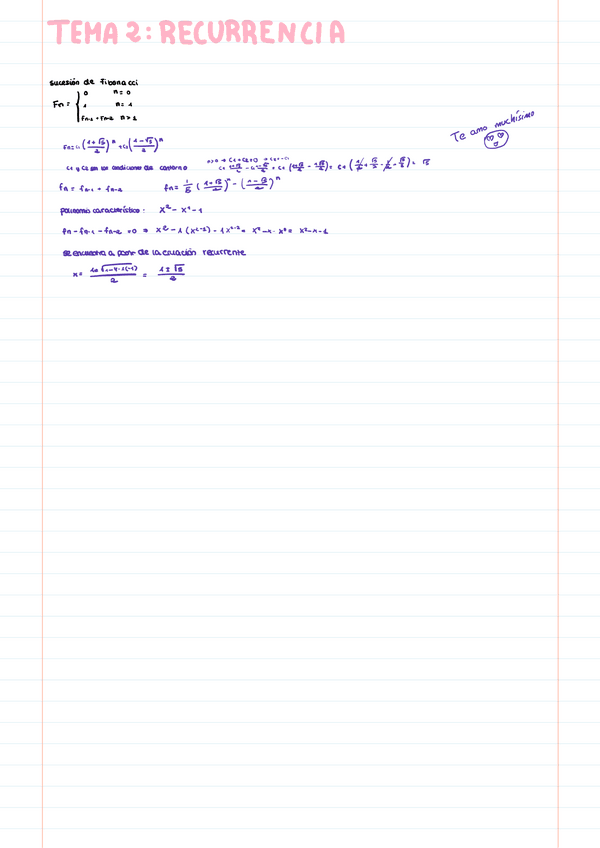 TEMA 2: RECURRENCIA
sucesión de Fibonacci
Fn = { 0 n = 0
1 n = 1
Fn-1 + Fn-2 n > 1
Te amo muchísimo
Fn = C1 ((1+√5)/2)^n + C2 ((1-√5)/2)^n
C1 y C2 son las condiciones de contorno
fn = fn-1 + fn-2 fn = 1/√5 ((1+√5)/2)^n - ((1-√5)/2)^n
polinomio característico: x² - x¹ - 1
fn - fn-1 - fn-2 = 0 ⇒ x² - 1(x²⁻¹) - 1x²⁻² = x² - x - x⁰ = x² - x - 1
se encuentra a partir de la ecuación recurrente
x = (1±√(1-4·1(-1)))/2 = (1±√5)/2